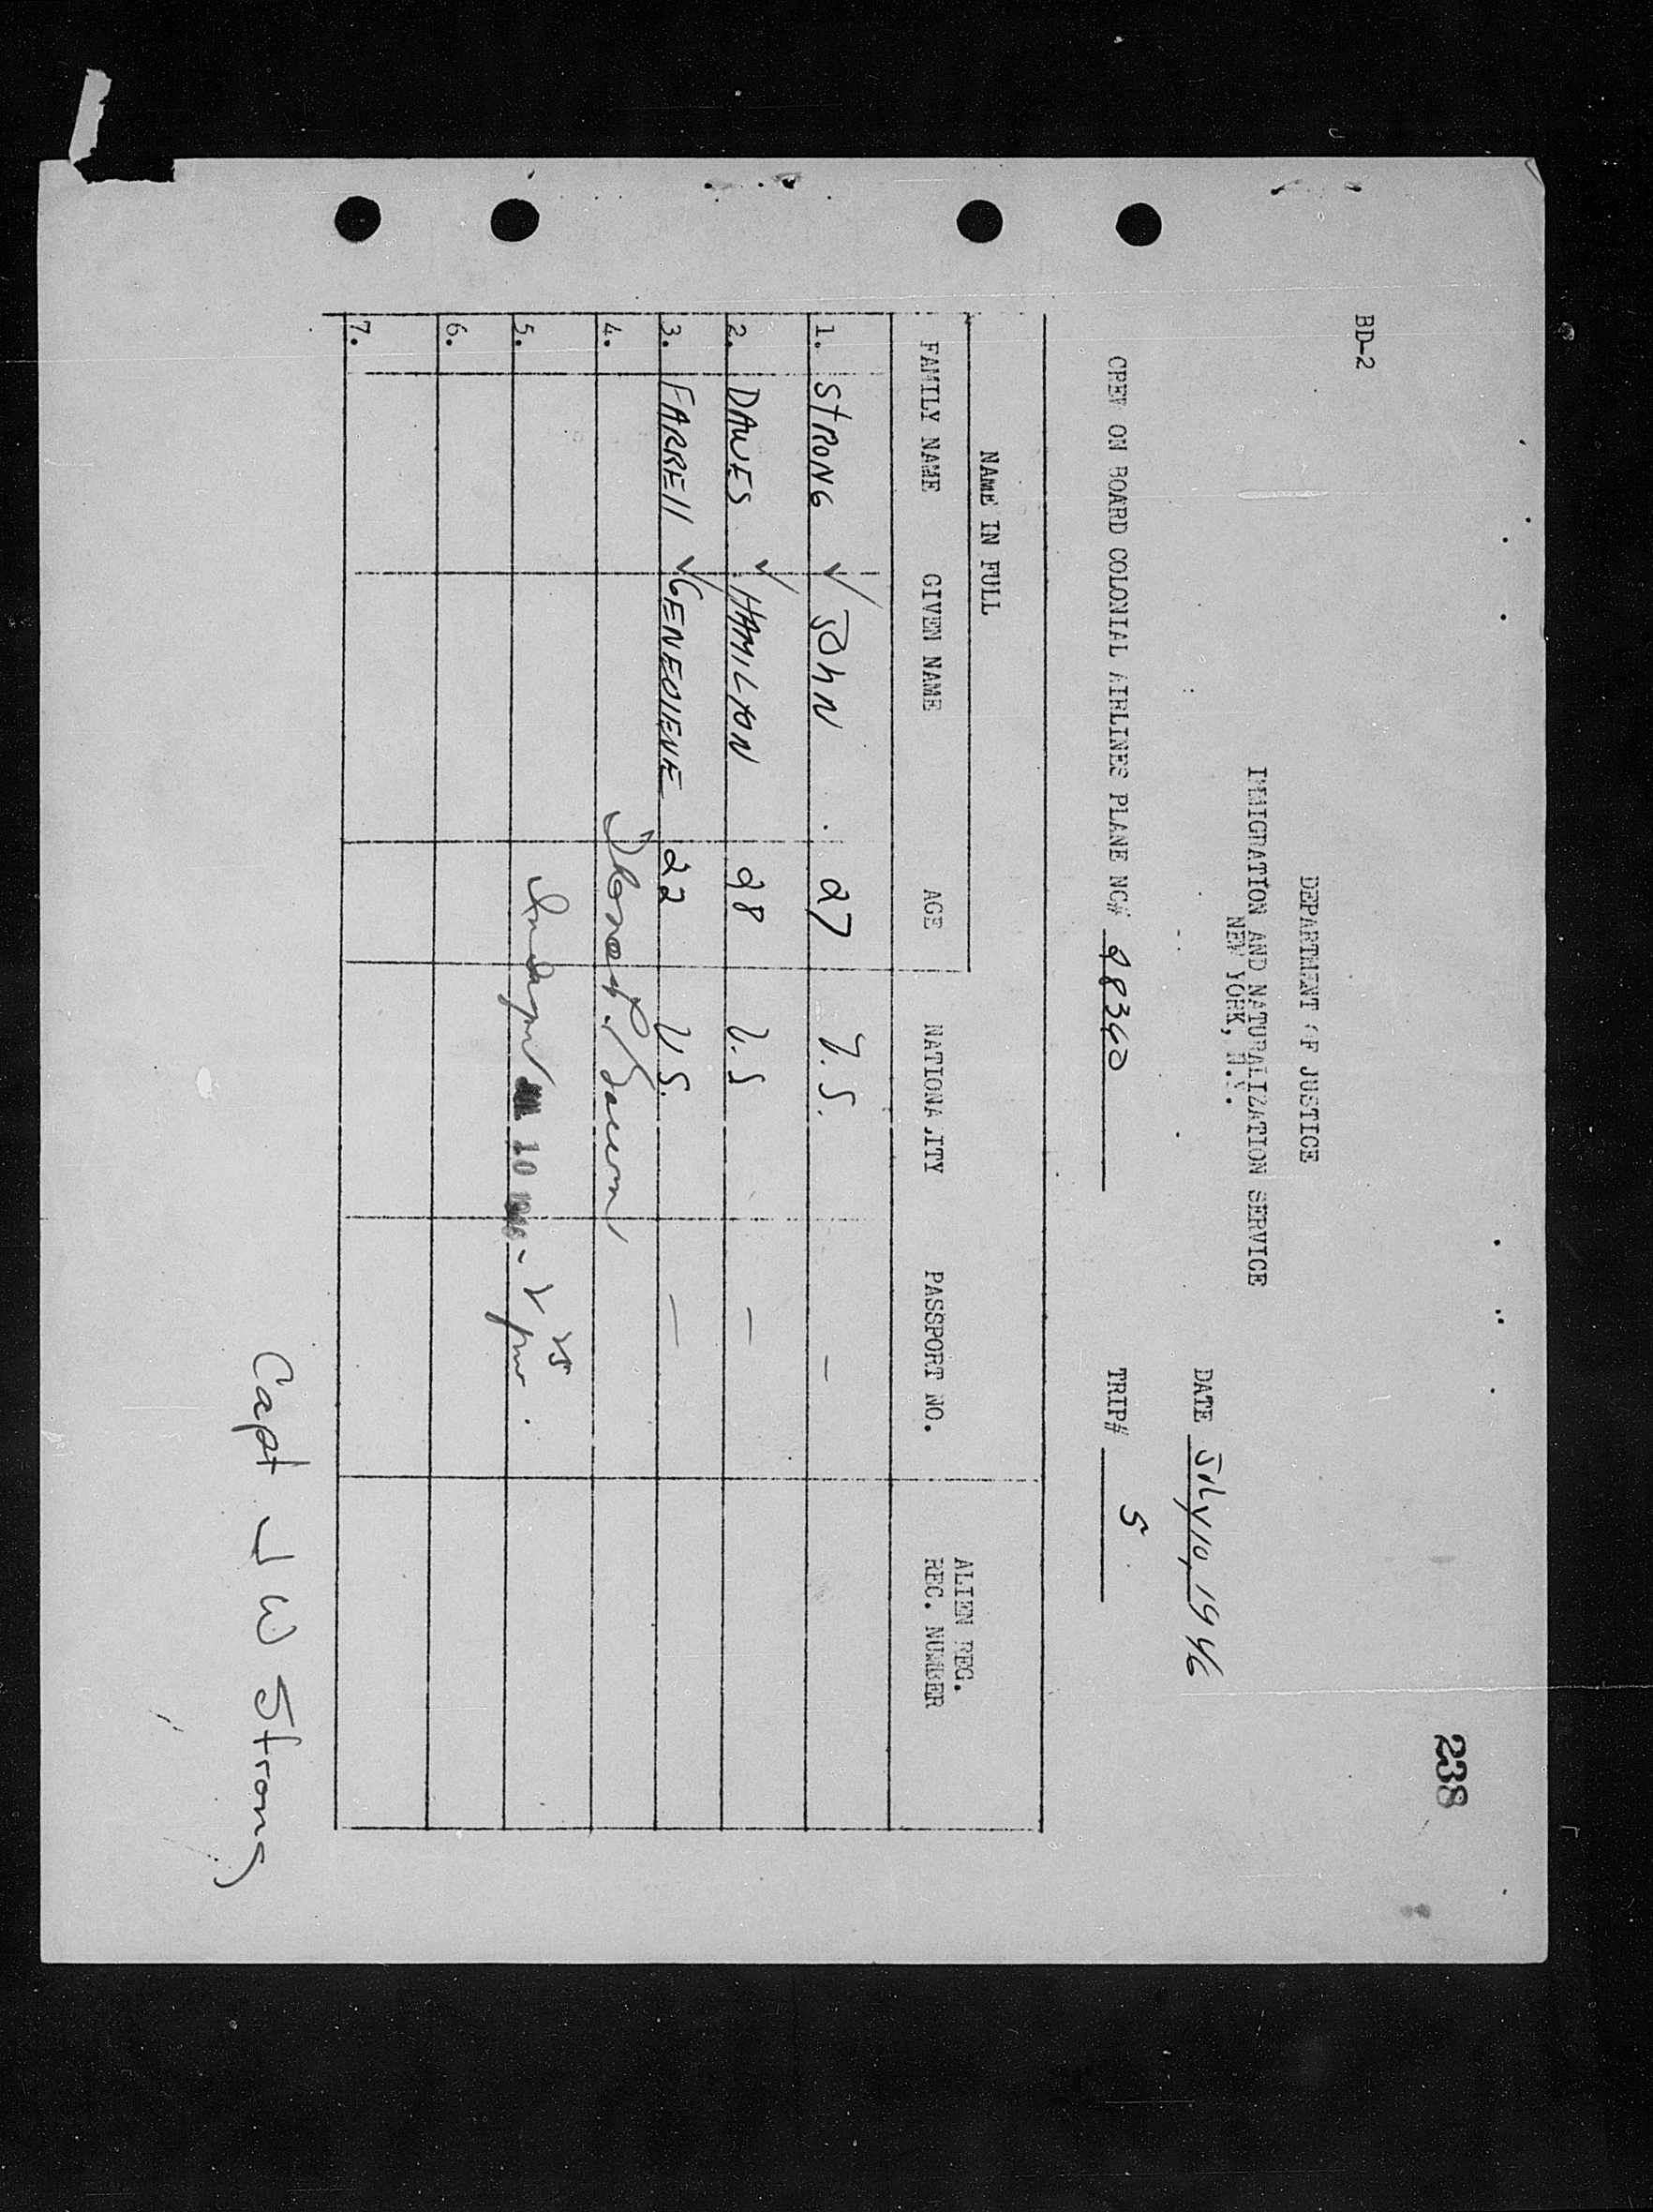 238
BD-2
DEPARTMENT OF JUSTICE
IMMIGRATION AND NATURALIZATION SERVICE
NEW YORK, N.Y.
DATE July 10, 1946
CREW ON BOARD COLONIAL AIRLINES PLANE NC# 28360 TRIP# 5
NAME IN FULL
ALIEN REG.
FAMILY NAME GIVEN NAME AGE NATIONALITY PASSPORT NO. REC. NUMBER
1. STRONG ✓ JOHN 27 U.S. —
2. DAWES ✓ HAMILTON 28 U.S —
3. FARRELL ✓ GENEVIEVE 22 U.S. —
4.
5. JUL 10 1946 - 2 25 pm.
6.
7.
Capt J W Strong